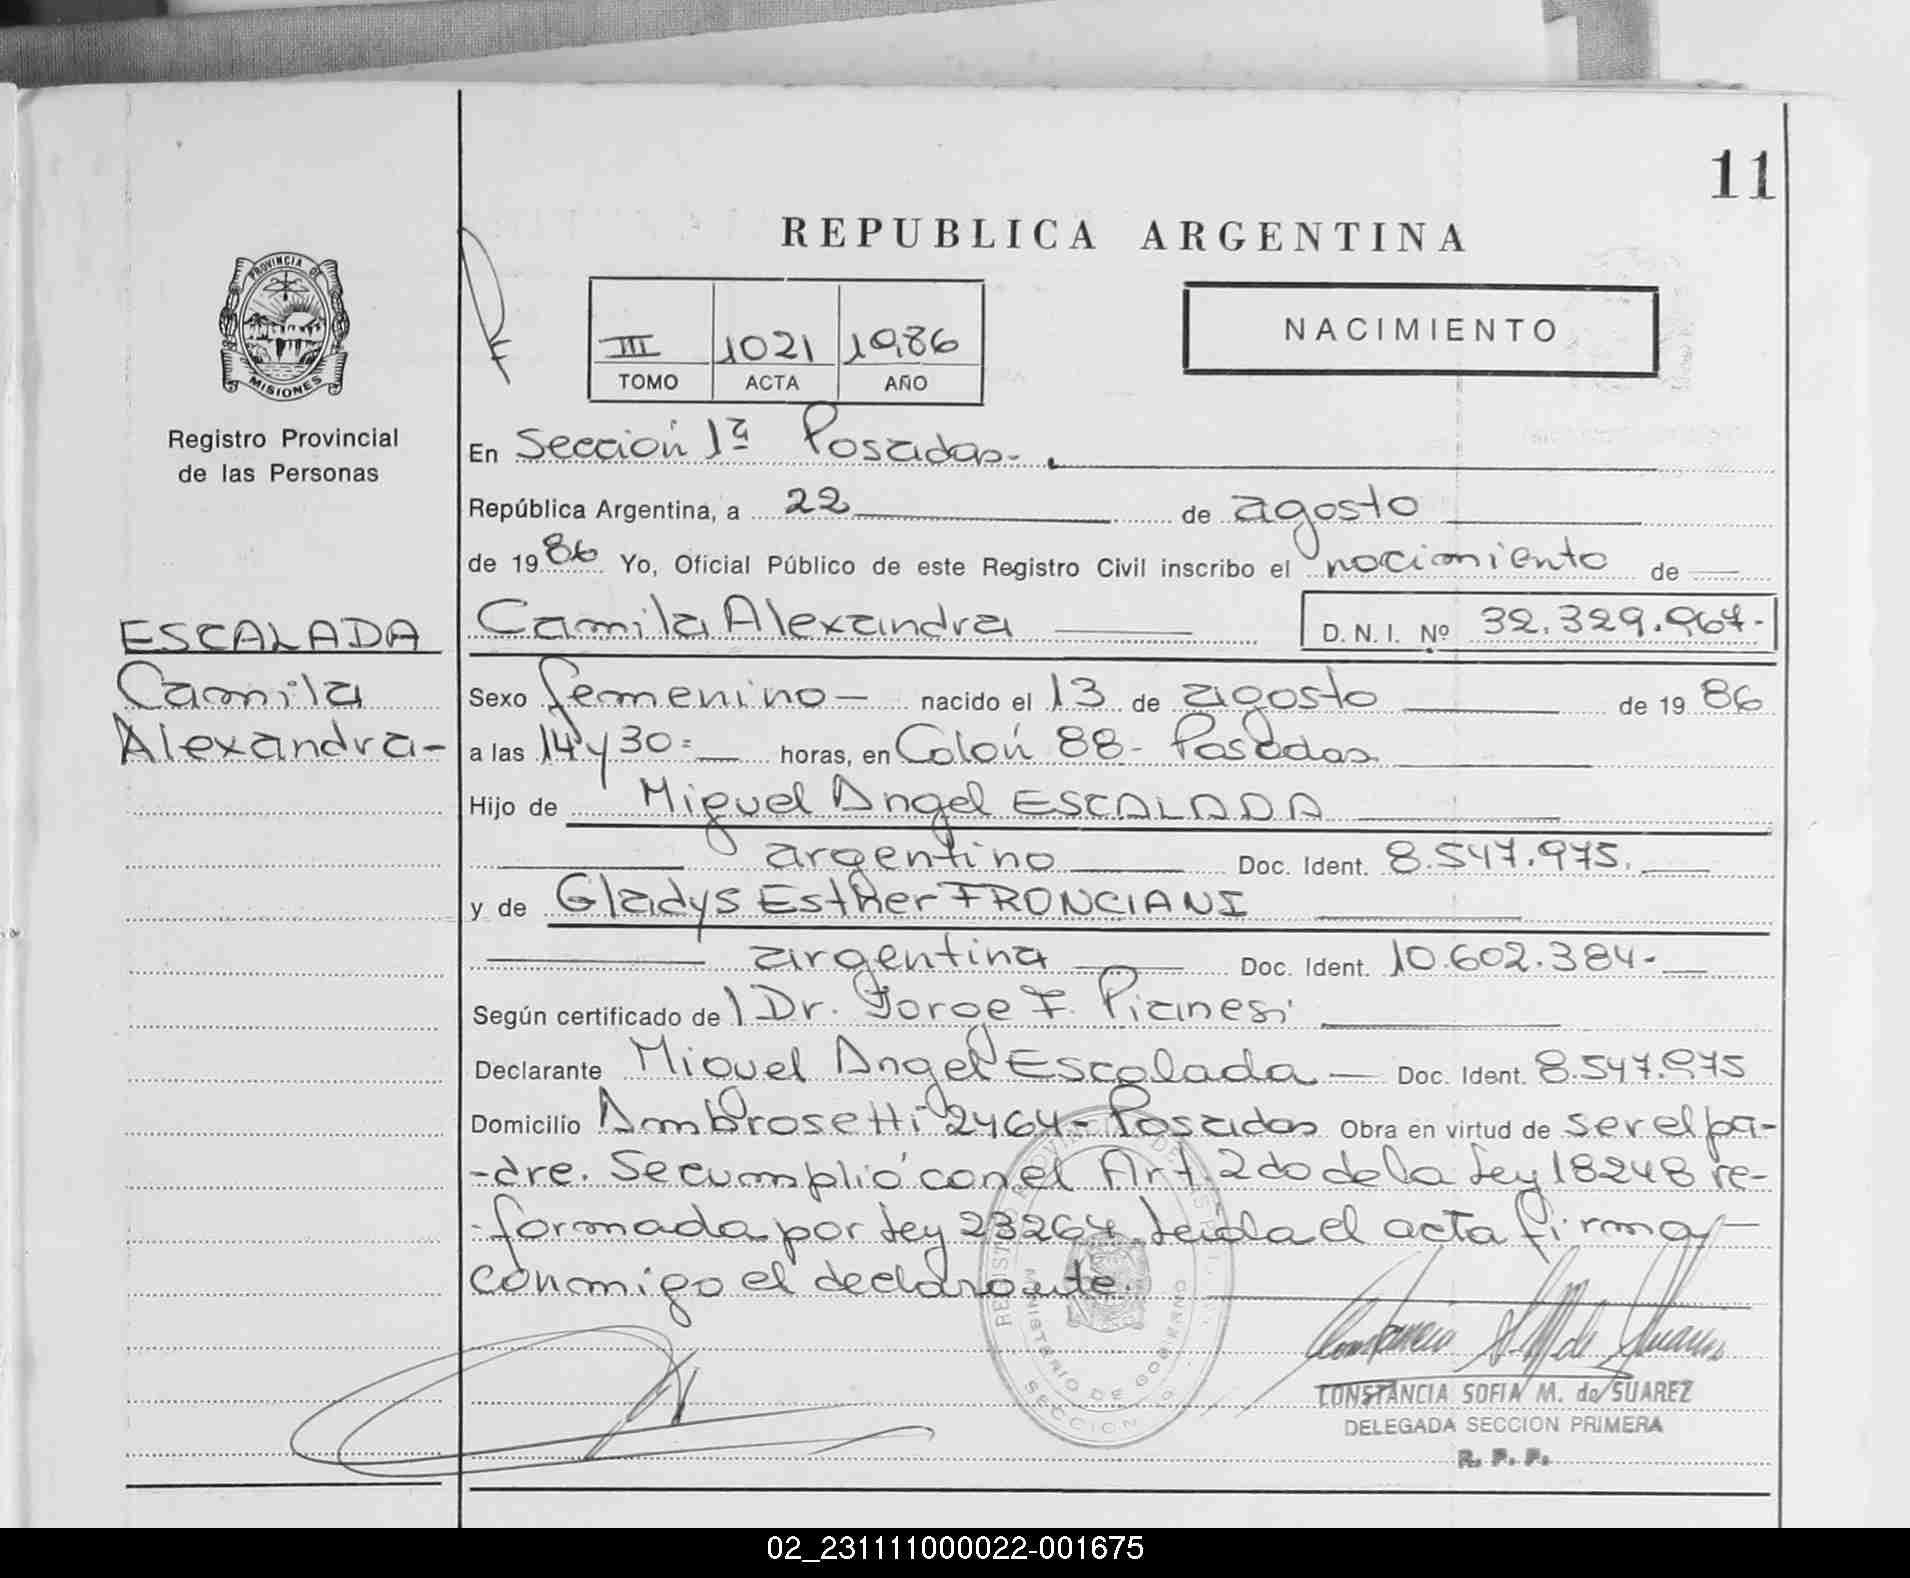 11
REPUBLICA ARGENTINA
PROVINCIA DE
MISIONES
Registro Provincial
de las Personas
III 1021 1986
TOMO ACTA AÑO
NACIMIENTO
En Sección 1ª Posadas-.
República Argentina, a 22 de agosto
de 1986 Yo, Oficial Público de este Registro Civil inscribo el nacimiento de
ESCALADA
Camila
Alexandra-
Camila Alexandra D. N. I. Nº 32.329.967-
Sexo femenino- nacido el 13 de agosto de 1986
a las 14 y 30= horas, en Colón 88- Posadas
Hijo de Miguel Angel ESCALADA
argentino Doc. Ident. 8.547.975.
y de Gladys Esther FRONCIANI
argentina Doc. Ident. 10.602.384-
Según certificado del Dr. Jorge F. Pianesi
Declarante Miguel Angel Escalada- Doc. Ident. 8.547.975
Domicilio Ambrosetti 2464- Posadas Obra en virtud de ser el pa-
-dre. Se cumplió con el Art. 2do de la Ley 18248 re-
-formada por Ley 23264. Leída el acta firma
conmigo el declarante.
MINISTERIO DE GOBIERNO
SECCION
CONSTANCIA SOFIA M. de SUAREZ
DELEGADA SECCION PRIMERA
R. P. P.
02_231111000022-001675